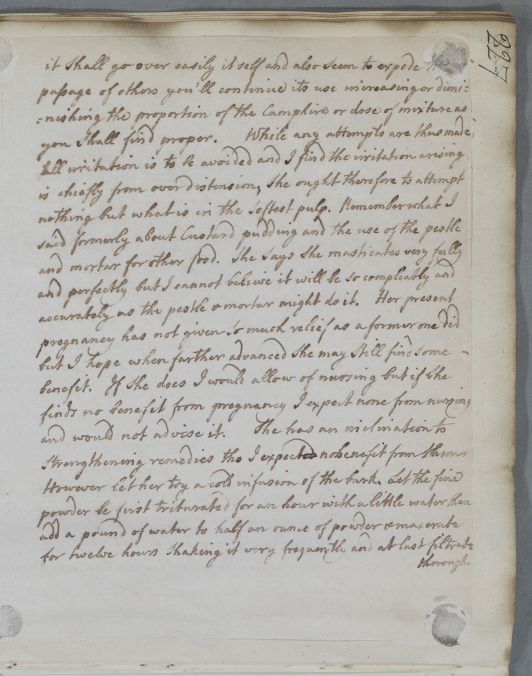 227
it shall go over easily itself and also seem to expede the
passage of others you'll continue its use increasing or dimi:
:nishing the proportion of the Camphire or dose of mixture as
you shall find proper. While any attempts are thus made
all irritation is to be avoided and I find the irritation arising
is chiefly from over distension, she ought therefore to attempt
nothing but what is in the softest pulp. Remember what I
said formerly about Custard pudding and the use of the pestle
and mortar for other food. She says she masticates very fully
and perfectly but I cannot believe it will be so compleatly and
accurately as the pestle & mortar might do it. Her present
pregnancy has not given so much relief as a former one did
but I hope when farther advanced she may still find some -
benefit. If she does I would allow of nursing but if she
finds no benefit from pregnancy I expect none from nursing
and would not advise it. She has an inclination to
strengthening remedies tho I expected no benefit from them
However let her try a cold infusion of the bark. Let the fine
powder be first triturated for an hour with a little water then
add a pound of water to half an ounce of powder & macerate
for twelve hours shaking it very frequently and at last filtrate
thorough